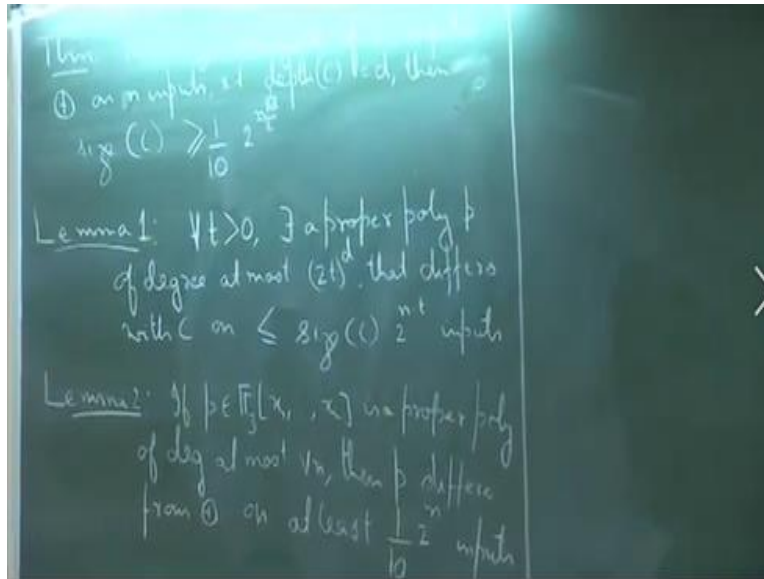 Thm
⊕ on n inputs, s.t. depth(C) = d, then
size (C) ≥ 1/10 2
Lemma 1: ∀t>0, ∃ a proper poly p
of degree at most (2t)^d, that differs
with C on ≤ size(C) 2^{n-t} inputs
Lemma 2: If p∈F_3[x, , x] is a proper poly
of deg at most √n, then p differs
from ⊕ on at least 1/10 2^n inputs